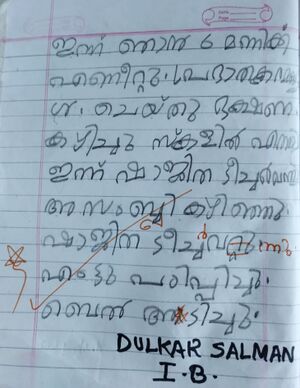 ഇന്ന് ഞാൻ 6 മണിക്ക്
എണീറ്റു. പ്രഭാതകൃത്യ
ചെയ്തു ഭക്ഷണം
കഴിച്ചു സ്കൂളിൽ എത്തി
ഇന്ന് ഷാജിത ടീച്ചർ വന്നു
അസംബ്ലി കഴിഞ്ഞു.
ഷാജിത ടീച്ചർ വന്നു.
പാട്ടു പഠിപ്പിച്ചു.
ബെൽ അടിച്ചു.
DULKAR SALMAN
I.B.